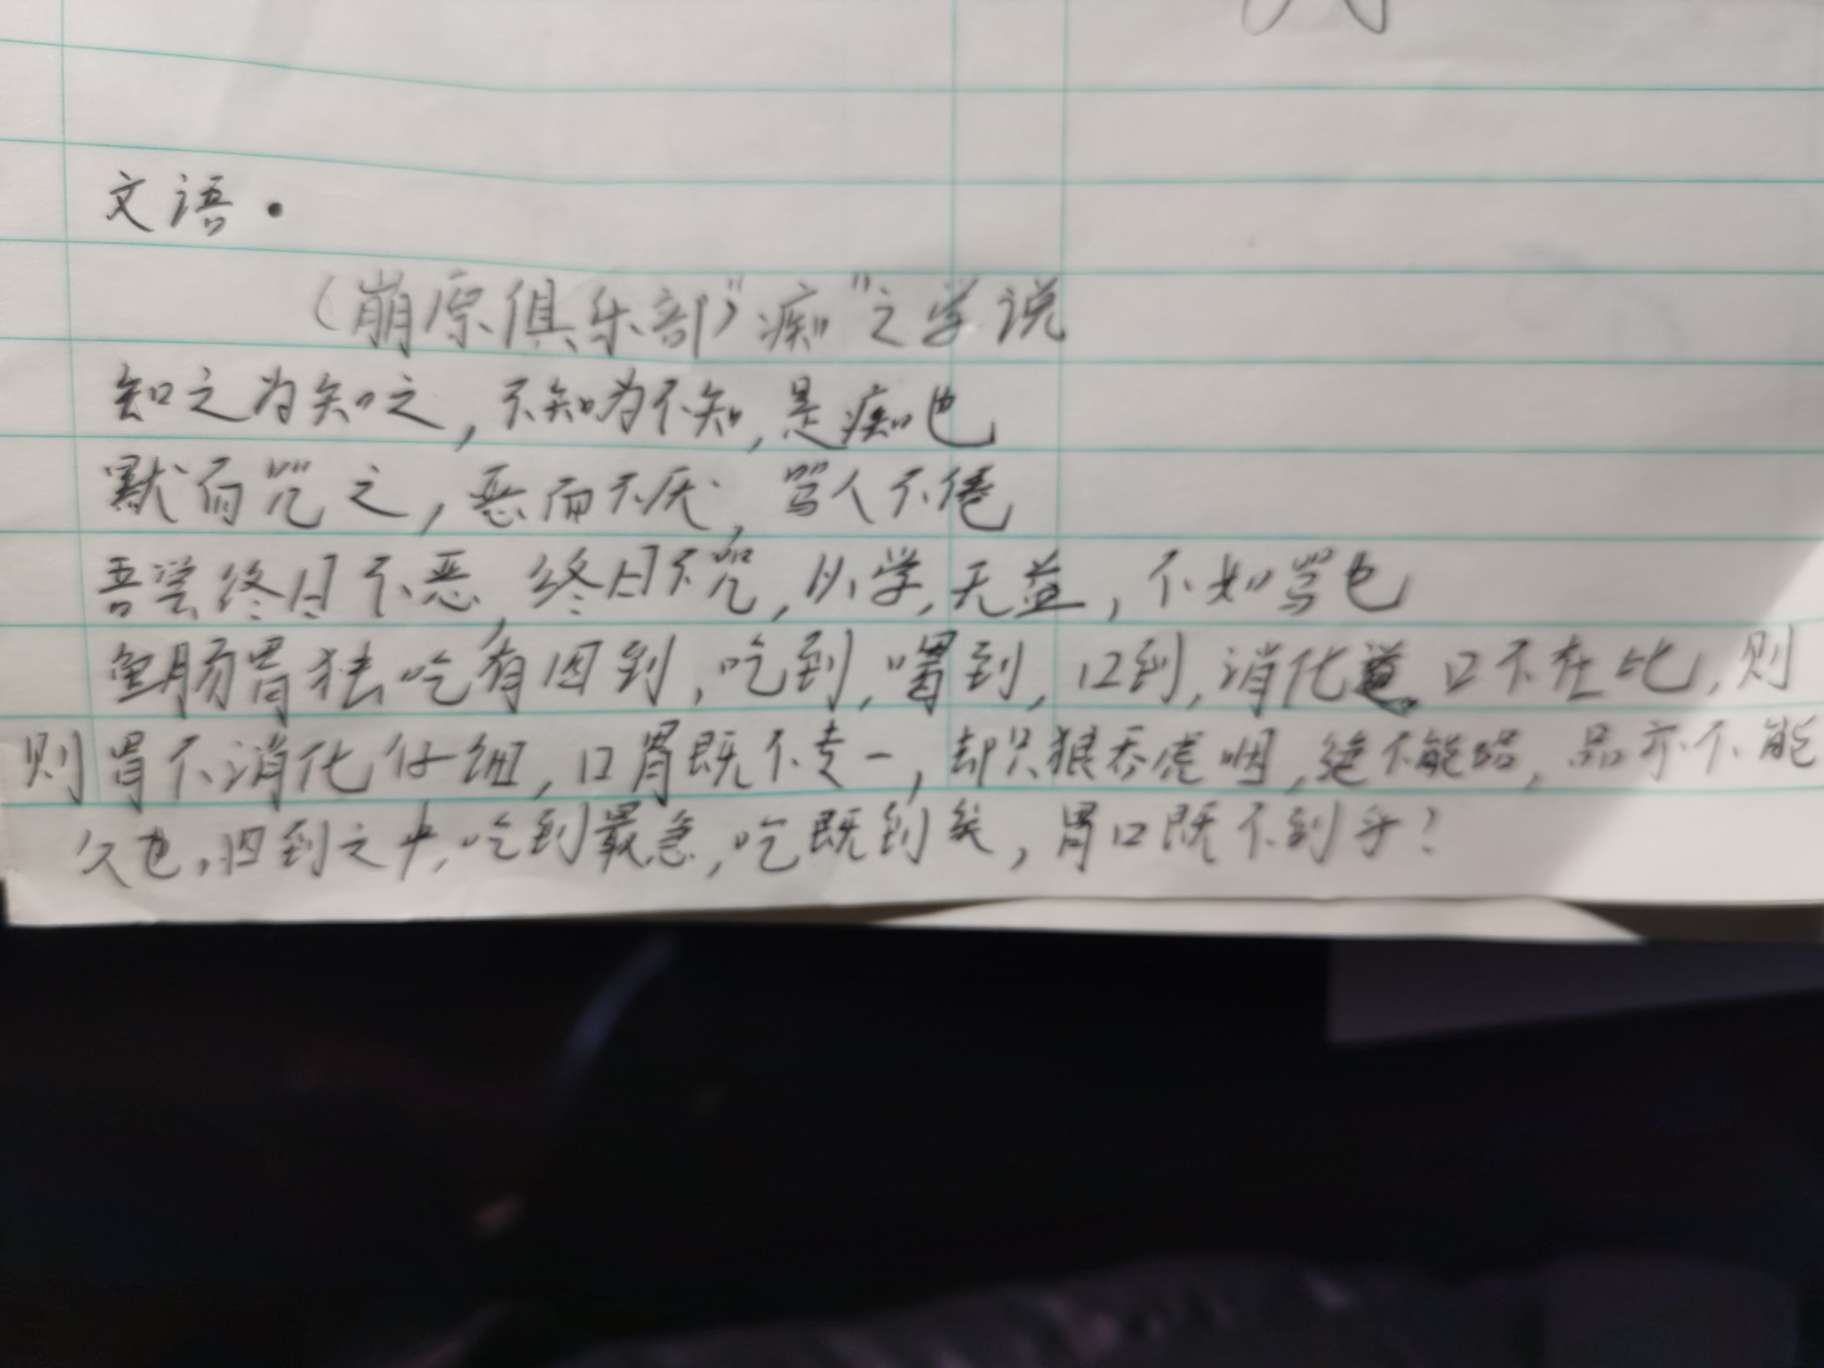 文语·
（崩原俱乐部）"痴"之学说
知之为知之，不知为不知，是痴也
默而咒之，恶而不厌，骂人不倦
吾尝终日不恶，终日不咒，以学，无益，不如骂也
鱼肠胃独吃有四到，吃到，嘴到，口到，消化道。口不在此，则
则胃不消化仔细，口胃既不专一，却只狼吞虎咽，绝不能品，品亦不能
久也，四到之中，吃到最急，吃既到矣，胃口既不到乎？